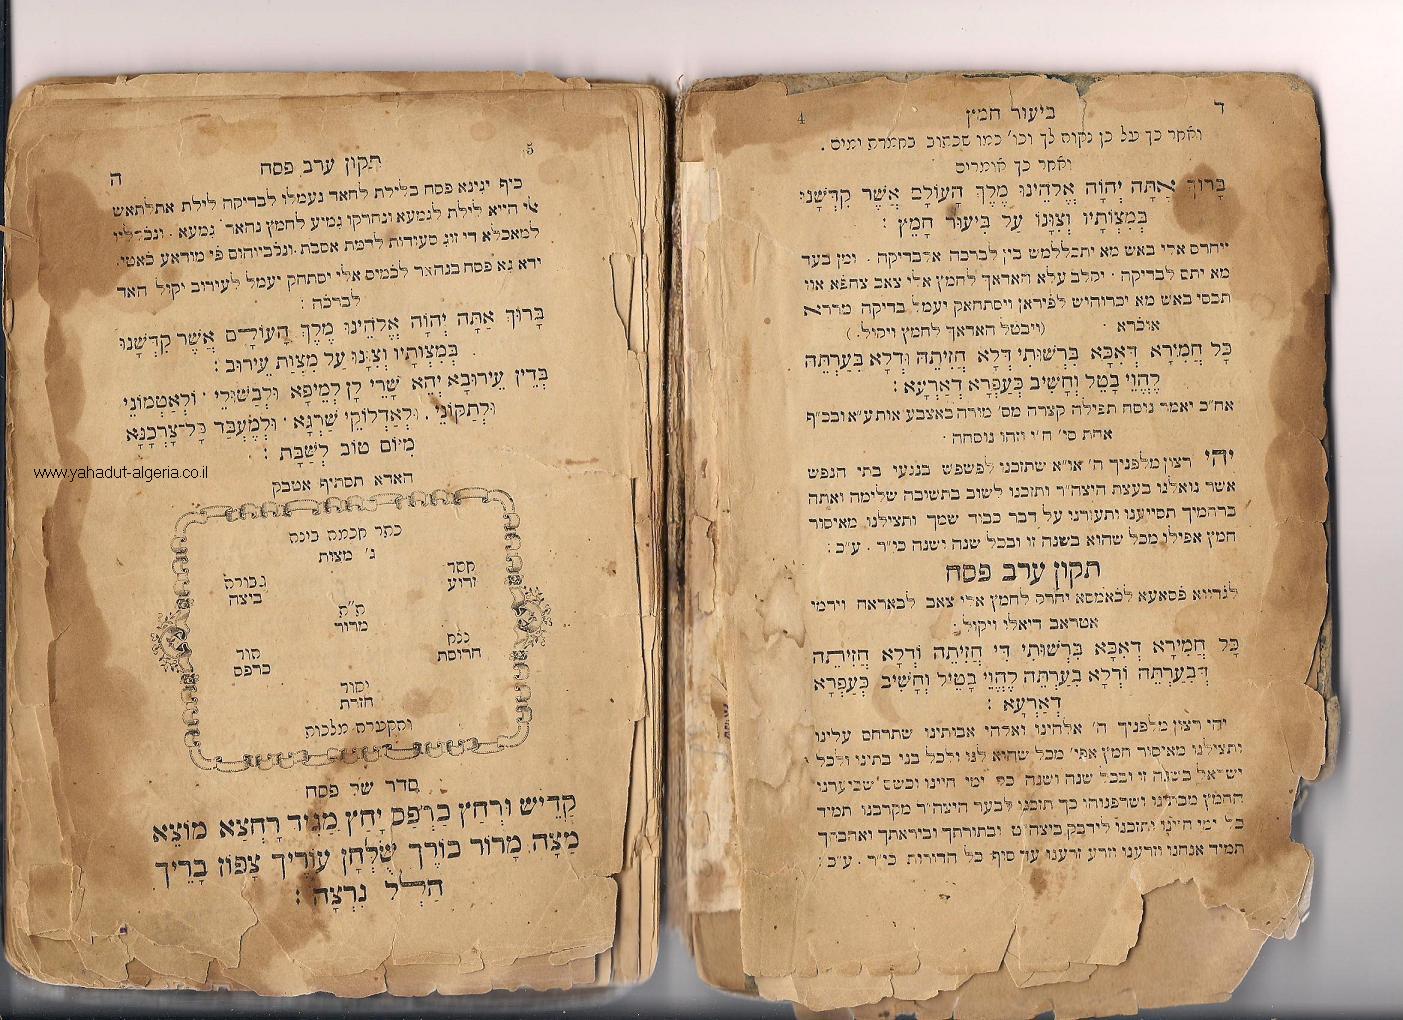 ד
ביעור חמץ
4
ואחר כך על כן נקוה לך וכו' כמו שכתוב בחמדת ימים .
ואחר כך אומרים
בָּרוּךְ אַתָּה יְהֹוָה אֱלֹהֵינוּ מֶלֶךְ הָעוֹלָם אֲשֶׁר קִדְּשָׁנוּ
בְּמִצְוֹתָיו וְצִוָּנוּ עַל בִּיעוּר חָמֵץ :
ייחרס אלי באש מא יתכללמש בין לברכה אלבריקה . ומן בעד
מא יתם לבריקה . יקלב עלא האדאך לחמץ אלי צאב צחפא אוו
תכסי באש מא יכרוהיש לפיראן ויסתחאק יעמל בדיקה מררא
אוכרא . (ויבטל האדאך לחמץ ויקול.)
כָּל חֲמִירָא דְּאִכָּא בִּרְשׁוּתִי דְּלָא חֲזִיתֵהּ וּדְלָא בִּעַרְתֵּהּ
לֶהֱוֵי בָּטֵל וְחָשִׁיב כְּעַפְרָא דְאַרְעָא :
אח"כ יאמר נוסח תפילה קצרה מס' מורה באצבע אות ע"א ובכ"ף
אחת סי' ח"י וזהו נוסחה .
יְהִי רצון מלפניך ה' או"א שתזכנו לפשפש בנגעי בתי הנפש
אשר נואלנו בעצת היצה"ר ותזכנו לשוב בתשיבה שלימה ואתה
ברחמיך תסייענו ותעזרנו על דבר כבוד שמך ותצילנו מאיסור
חמץ אפילו מכל שהוא בשנה זו ובכל שנה ושנה כי"ר . ע"כ :
תקון ערב פסח
לגדווא פסאעא לכאמסא יחרק לחמץ אלי צאב לבאראח וירמי
אטראב דיאלו ויקול :
כָּל חֲמִירָא דְאִכָּא בִּרְשׁוּתִי דִּי חֲזִיתֵהּ וּדְלָא חֲזִיתֵהּ
דְּבִעַרְתֵּהּ וּדְלָא בִעַרְתֵּהּ לֶהֱוֵי בָּטֵיל וְחָשִׁיב כְּעַפְרָא
דְאַרְעָא :
יהי רצון מלפניך ה' אלהינו ואלהי אבותינו שתרחם עלינו
ותצילנו מאיסור חמץ אפי' מכל שהוא לנו ולכל בני בתינו ולכל
ישראל בשנה זו ובכל שנה ושנה כל ימי חיינו וכשם שביערנו
החמץ מבתינו ושרפנוהו כך תזכנו לבער היצה"ר מקרבנו תמיד
כל ימי חיינו ותזכנו לידבק ביצה"ט ובתורתך וביראתך ואהבתך
תמיד אנחנו וזרענו וזרע זרענו עד סוף כל הדורות כי"ר . ע"כ :
5
תקון ערב פסח
ה
כיף יגינא פסח בלילת לחאד נעמלו לבריקה לילת אתלתאש
אלי הייא לילת לגמעא ונחרקו גמיע לחמץ נהאר גמעא .
למאכלא די זוג סעודות לרמת אסבת
ידא גא פסח בנהאר לכמיס אלי יסתחק יעמל לעירוב יקול האד
לברכה :
בָּרוּךְ אַתָּה יְהֹוָה אֱלֹהֵינוּ מֶלֶךְ הָעוֹלָם אֲשֶׁר קִדְּשָׁנוּ
בְּמִצְוֹתָיו וְצִוָּנוּ עַל מִצְוַת עֵירוּב :
בְּדֵין עֵירוּבָא יְהֵא שָׁרֵי לָן לְמֵיפָא וּלְבַשּׁוּלֵי . וּלְאַטְמוֹנֵי
וּלְתַקּוֹנֵי . וּלְאַדְלוֹקֵי שְׁרָגָא . וּלְמֶעְבַּד כָּל־צָרְכָנָא
מִיּוֹם טוֹב לְשַׁבָּת :
www.yahadut-algeria.co.il
האדא תסתיף אטבק
כתר חכמה בינה
ג' מצות
חסד
זרוע
גבורה
ביצה
ת"ת
מרור
נצח
חרוסת
הוד
כרפס
יסוד
חזרת
והקערה מלכות
סדר של פסח
קַדֵּישׁ וּרְחַץ כַּרְפַּס יָחַץ מַגִּיד רָחְצָא מוֹצֵא
מַצָּה מָרוֹר כּוֹרֵךְ שֻׁלְחָן עוֹרֵיךְ צָפוּן בָּרֵיךְ
הַלֵּל נִרְצָה :